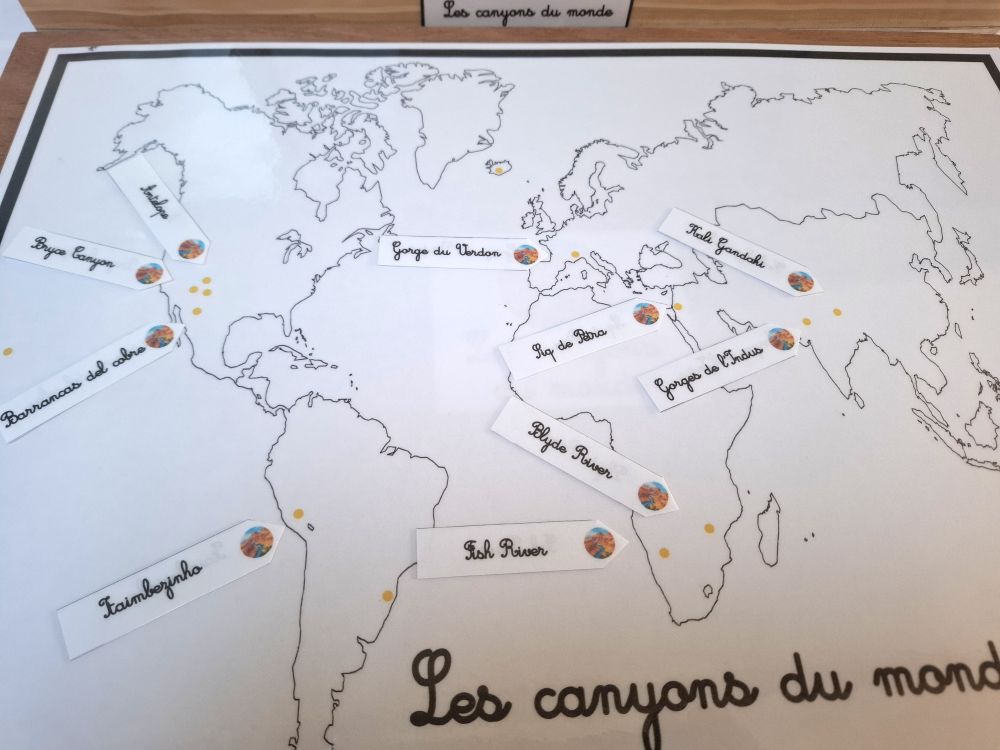 Les canyons du monde
Antilope
Bryce Canyon
Gorge du Verdon
Kali Gandaki
Barrancas del cobre
Siq de Pétra
Gorges de l'Indus
Blyde River
Fish River
Itaimbezinho
Les canyons du mond